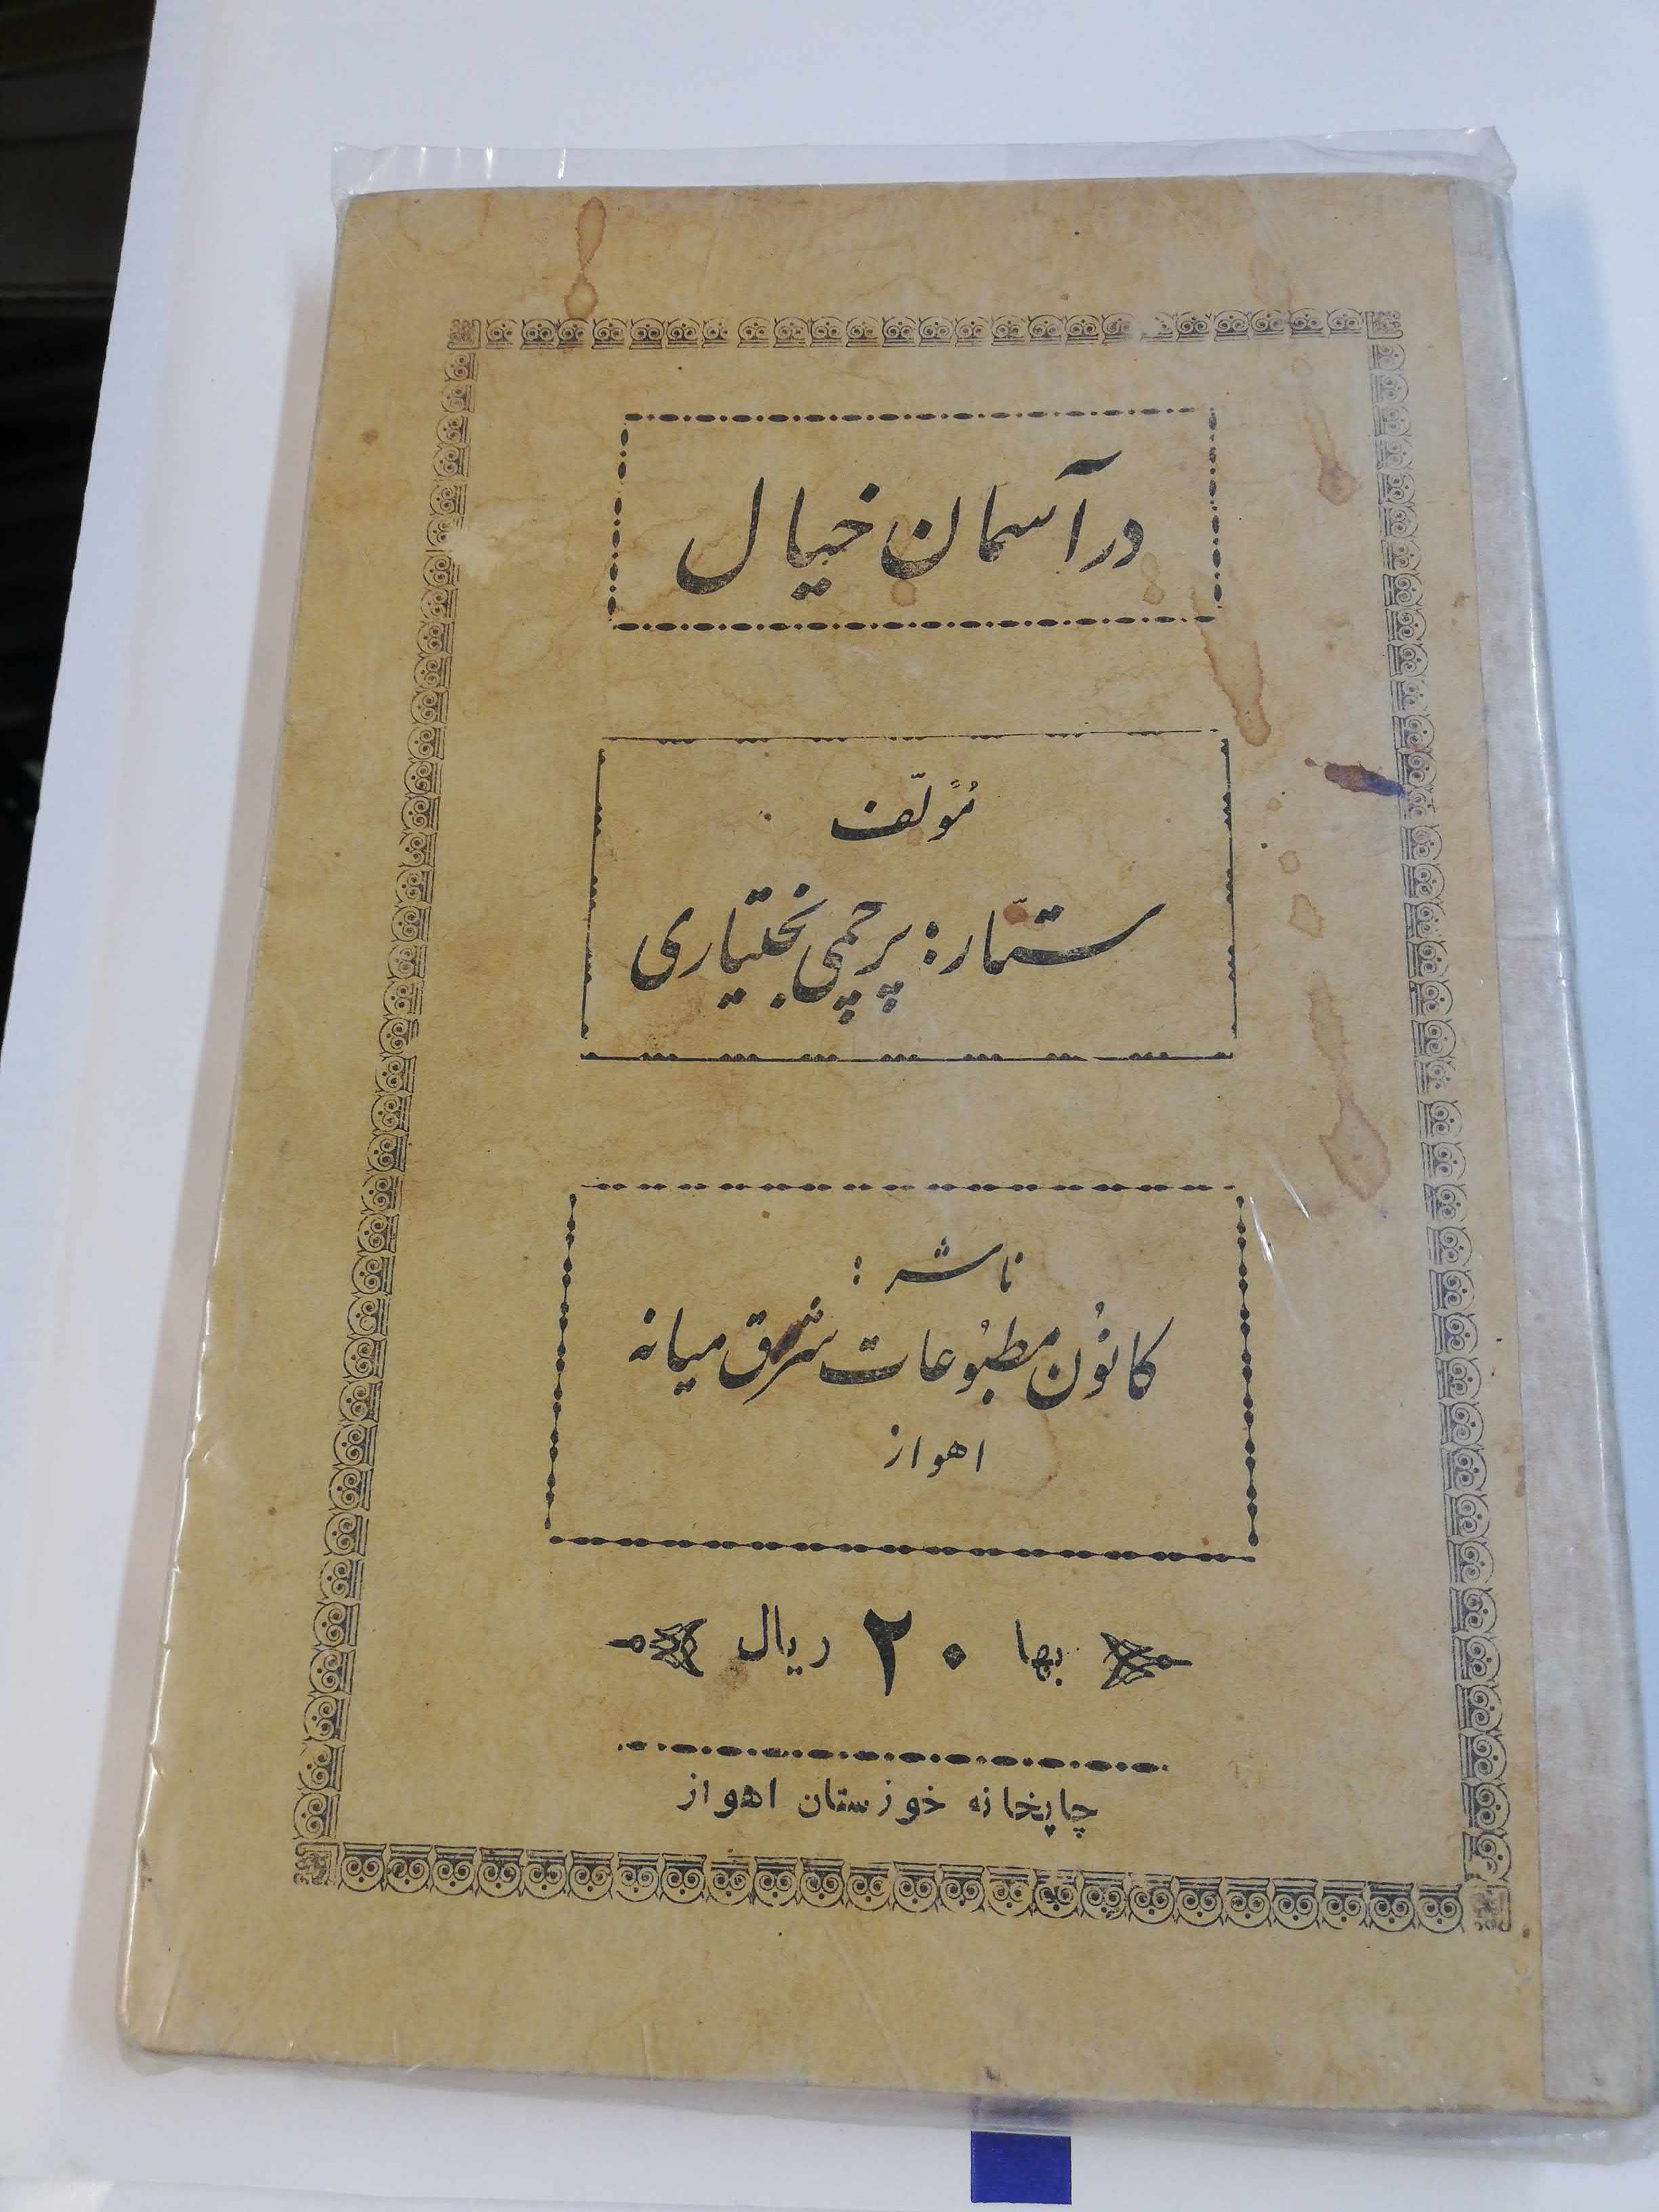 در آسمان خیال
مُؤلّف
ستّار: پرچمی بختیاری
ناشر :
کانُون مطبُوعات شرق میانه
اهواز
بها ۲۰ ریال
چاپخانه خوزستان اهواز